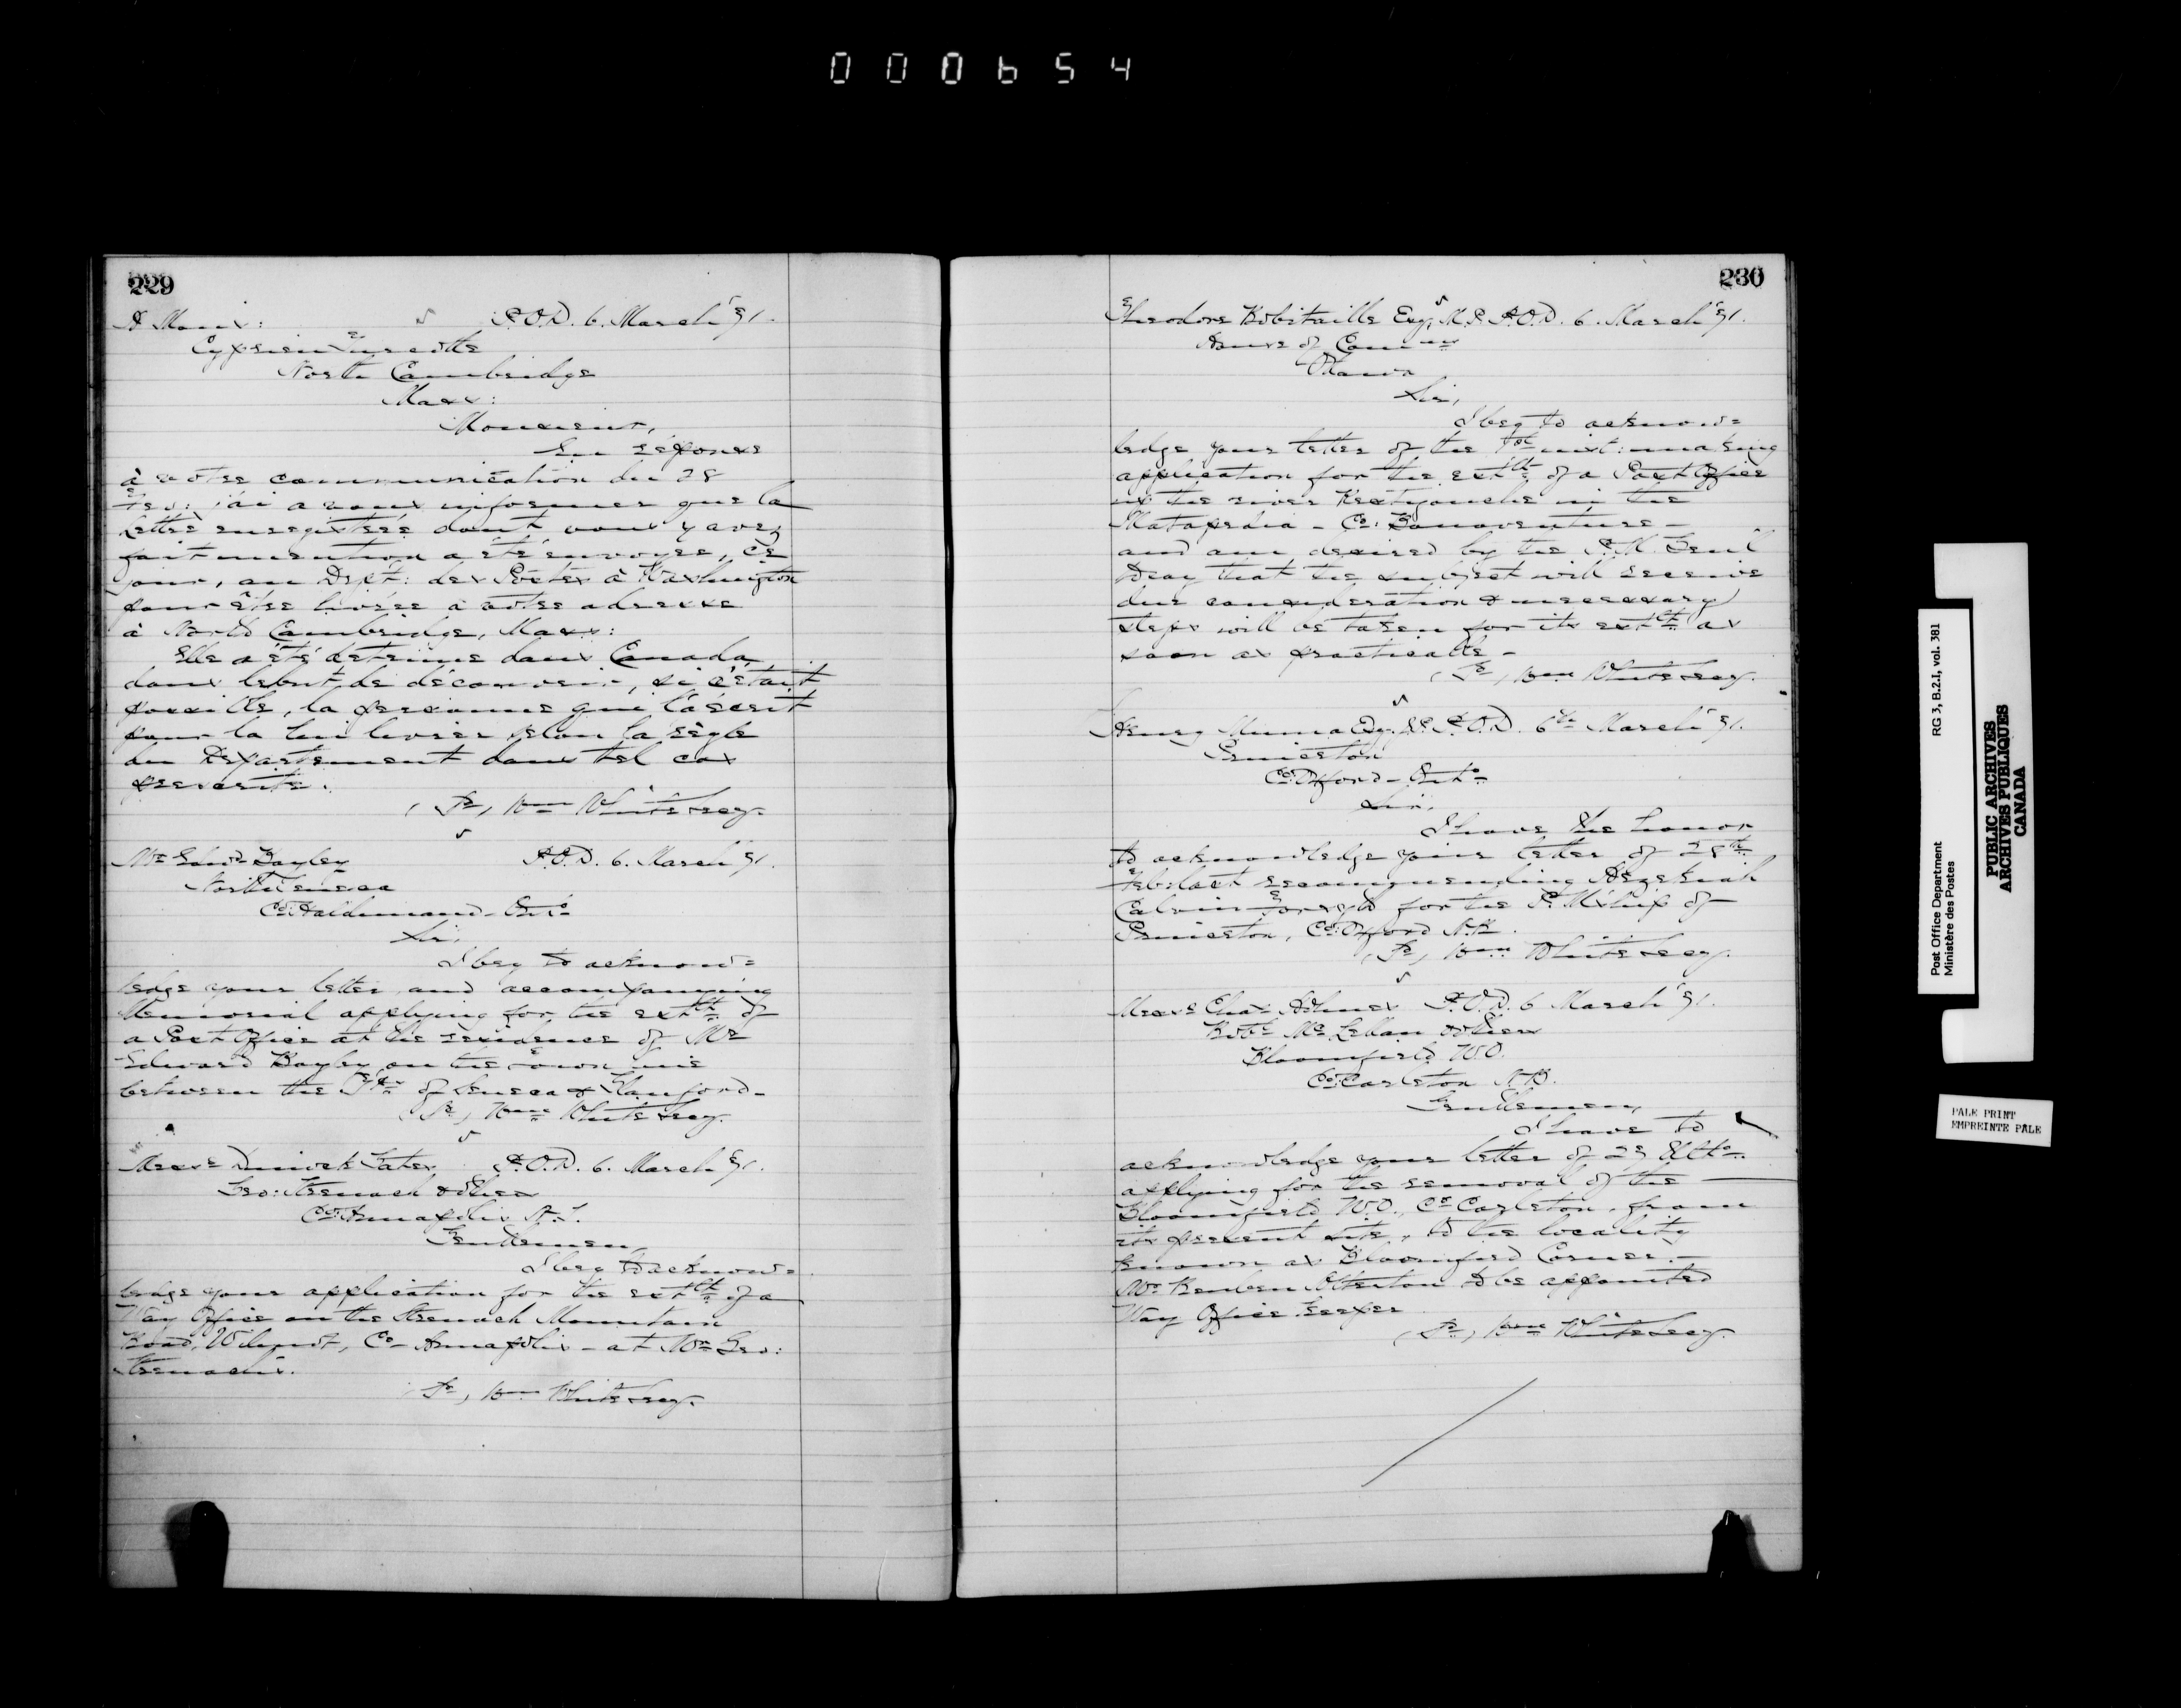 000654
229
A Mons:
P.O.D. 6. March '71.
Cyprien
North Cambridge
Mass:
Monsieur,
En réponse
à votre communication du 28
Fev: j'ai a vous informer que la
Lettre enregistrée dont vous y avez
fait mention a été envoyée, ce
jour, au Dept: des Postes à Washington
pour être livrée à votre adresse
à North Cambridge, Mass:
Elle a été detenue dans Canada
dans le but de découvrir, si c'était
possible, la personne qui l'a écrit
pour la lui livrer selon la règle
du Departement dans tel cas
(Sd) Wm White Secy.
Mr Edwd Bayley
P.O.D. 6. March '71.
North Seneca
Co: Haldimand - Onto
Sir,
I beg to acknow=
ledge your letter and accompanying
Memorial applying for the estlt of
a Post Office at the residence of Mr
Edward Bayley on the town line
between the Tps of Seneca & Glanford -
(Sd) Wm White Secy.
Messrs
P.O.D. 6. March '71.
Geo: Stronach & others
Co: Annapolis N.S.
Gentlemen,
I beg to acknow=
ledge your application for the estlt of a
Way Office on the Stronach Mountain
Road, Wilmot, Co Annapolis - at Mr Geo:
Stronach's.
(Sd) Wm White Secy.
230
Theodore Robitaille Esq, M.P. P.O.D. 6. March '71.
House of Comns
Ottawa
Sir,
I beg to acknow=
ledge your letter of the 1st inst: making
application for the estlt of a Post Office
on the river Restigouche in the
Matapedia - Co: Bonaventure -
and am desired by the P.M. Genl
to say that the subject will receive
due consideration & necessary
steps will be taken for its estlt as
soon as practicable -
(Sd) Wm White Secy.
Henry Muma Esq. J.P. P.O.D. 6th March '71.
Princeton
Co: Oxford - Onto
Sir,
I have the honor
to acknowledge your letter of 28th
Feb: last recommending Hezekiah
Calvin Forsyth for the P.M'ship of
Princeton, Co: Oxford N.R.
(Sd) Wm White Secy.
Messrs Chas Holmes P.O.D. 6 March '71.
Robt McLellan & others
Bloomfield W.O.
Co: Carleton N.B.
Gentlemen,
I have to
acknowledge your letter of 23 Ulto
applying for the removal of the
Bloomfield W.O., Co Carleton, from
its present site, to the locality
known as Bloomfield Corner -
Mr Reuben Atherton to be appointed
Way Office Keeper
(Sd) Wm White Secy.
Post Office Department
Ministère des Postes
RG 3, B.2.I, vol. 381
PUBLIC ARCHIVES
ARCHIVES PUBLIQUES
CANADA
PALE PRINT
EMPREINTE PALE